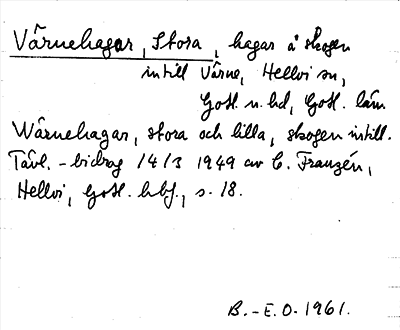 Värnehagar, Stora, hagar å skogen
intill Värne, Hellvi sn,
Gotl. n. hd, Gotl. län
Wärnehagar, stora och lilla, skogen intill.
Tävl.-bidrag 14/3 1949 av C. Franzén,
Hellvi, Gotl. hbf., s. 18.
B.-E.O. 1961.